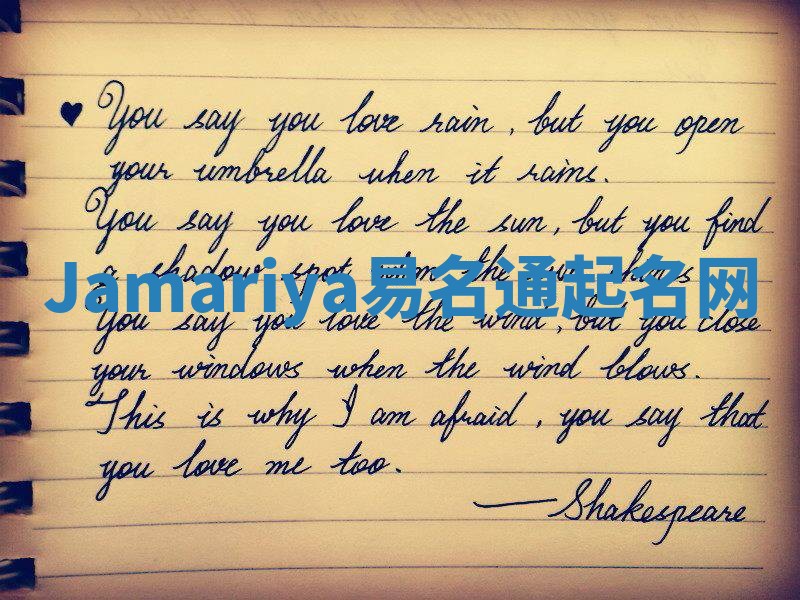 You say you love rain, but you open
your umbrella when it rains.
You say you love the sun, but you find
a shadow spot when the sun shines
Jamariya易名通起名网
You say you love the wind, but you close
your windows when the wind blows.
This is why I am afraid, you say that
you love me too.
—Shakespeare